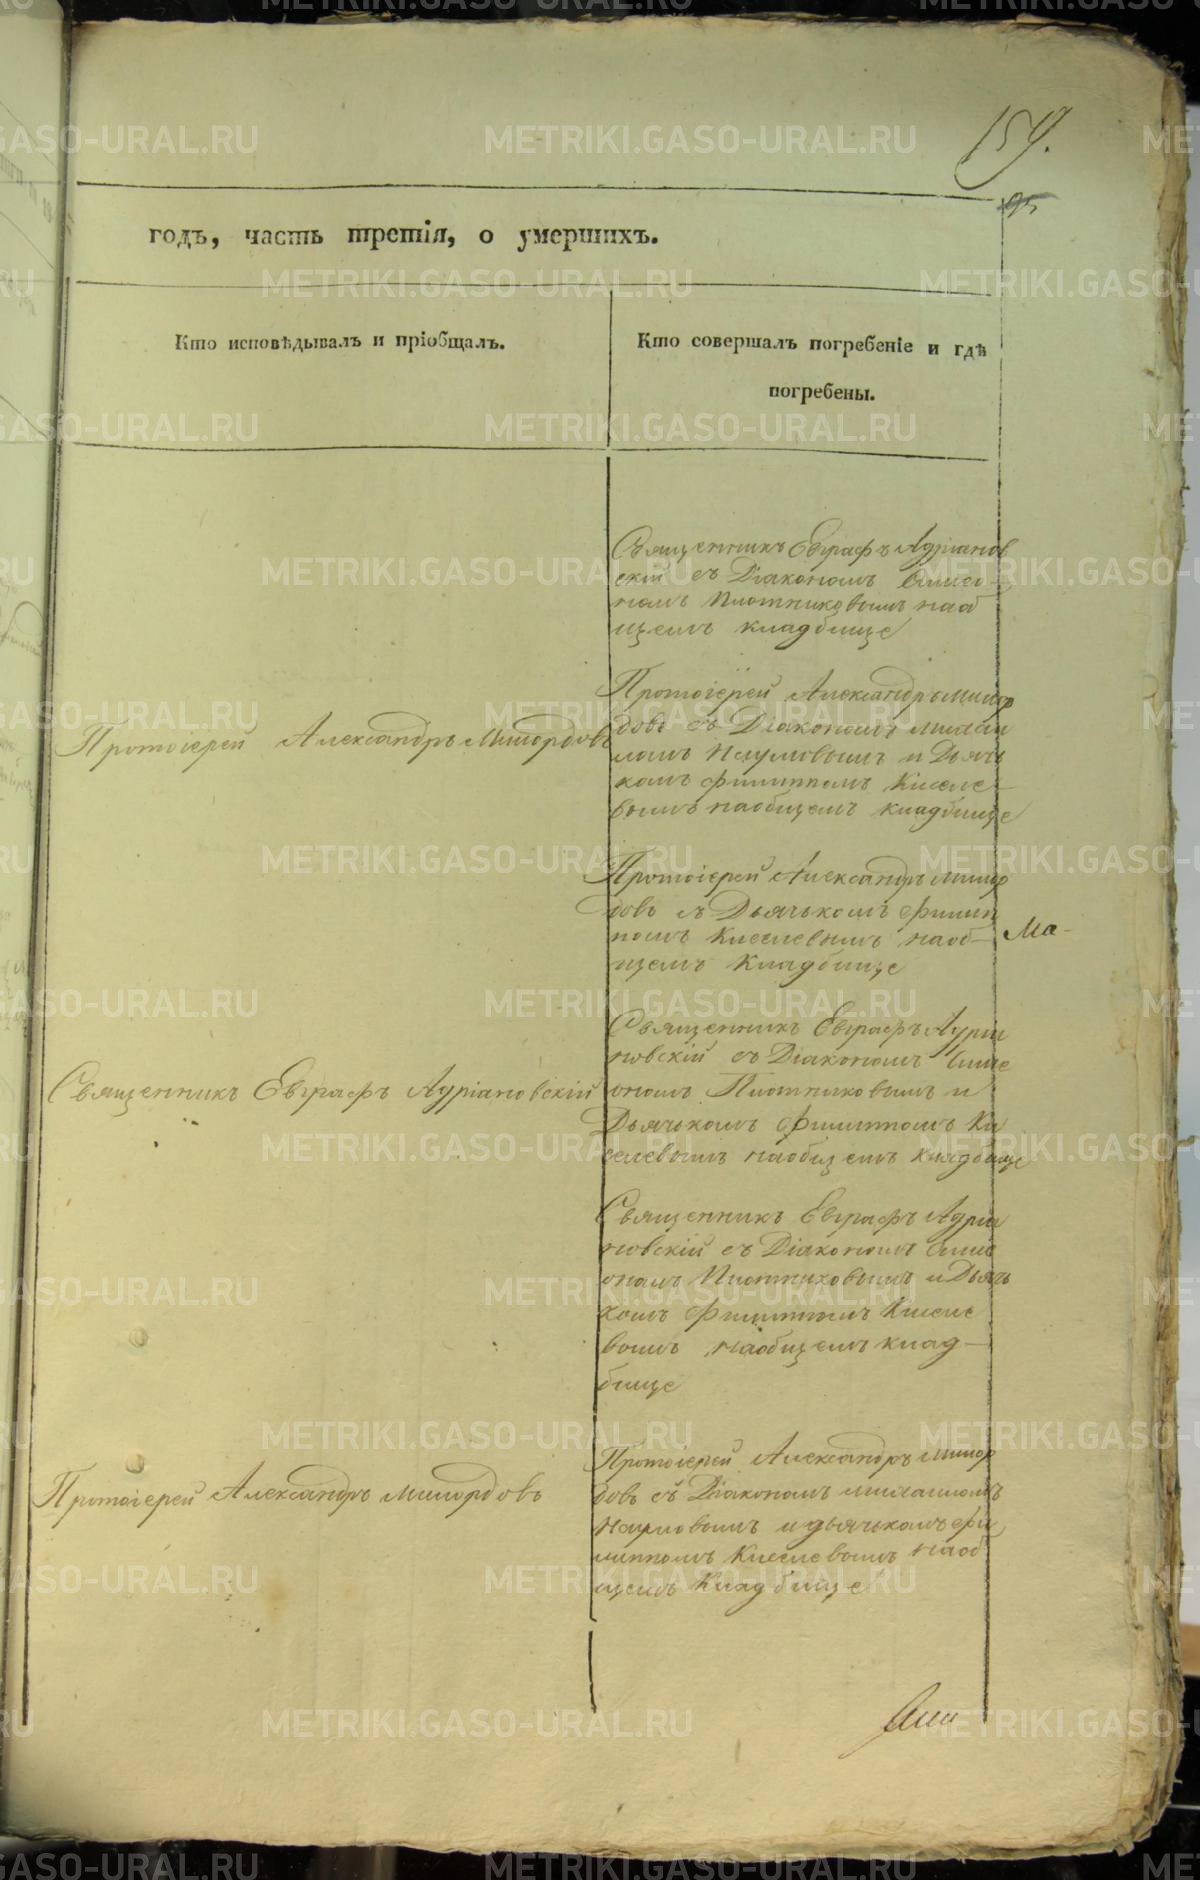 159.
95
годъ, часть третія, о умершихъ.
Кто исповѣдывалъ и пріобщалъ.
Кто совершалъ погребеніе и гдѣ
погребены.
Священникъ Евграфъ Адріанов
скій съ Діакономъ Симео-
номъ Плотниковымъ на об
щемъ кладбище
Протоіерей Александръ Милордовъ
Протоіерей Александръ Милор
довъ съ Діакономъ Михаи
ломъ Наумовымъ и Дьячь
комъ Филиппомъ Киселе-
вымъ на общемъ кладбище
Протоіерей Александръ Милор
довъ съ Дьячькомъ Филип
помъ Киселевымъ на об-
щемъ Кладбище
Ма-
Священникъ Евграфъ Адріановскій
Священникъ Евграфъ Адріа
новскій съ Діакономъ Симе
ономъ Плотниковымъ и
Дьячькомъ Филиппомъ Ки
селевымъ на общемъ Кладбище
Священникъ Евграфъ Адріа
новскій съ Діакономъ Симе
ономъ Плотниковымъ и Дьячь
комъ Филиппомъ Киселе
вымъ на общемъ клад-
бище
Протоіерей Александръ Милордовъ
Протоіерей Александръ Милор
довъ съ Діакономъ Михаиломъ
Наумовымъ и дьячькомъ Фи
липпомъ Киселевымъ на об
щемъ Кладбище
METRIKI.GASO-URAL.RU